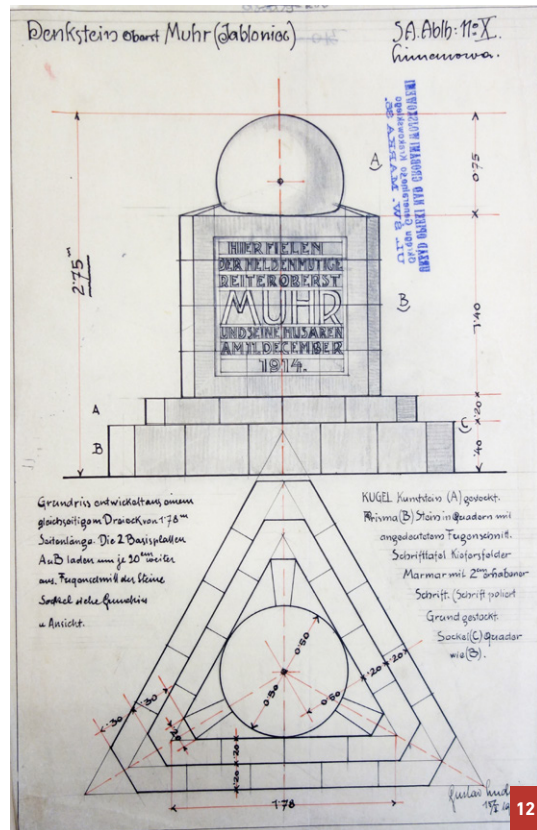 Denkstein Oberst Muhr (Jabloniec)
SA. Abth: No X.
Limanowa.
URZĄD OPIEKI NAD GROBAMI WOJSKOWEMI
Okręgu Generalnego Krakowskiego
A
0·75
2·75
HIER FIELEN
DER HELDENMUTIGE
REITEROBERST
MUHR
UND SEINE HUSAREN
AM 11. DECEMBER
1914.
B
1·40
A
·20
C
B
·40
Grundriss entwickelt aus einem
gleichseitigem Dreieck von 1·78 m
Seitenlänge. Die 2 Basisplatten
A u B laden um je 20 cm weiter
aus. Fugenschnitt der Steine
Sockel siehe Grundriss
u Ansicht.
KUGEL Kunststein (A) gestockt.
Prisma (B) Stein in Quadern mit
angedeutetem Fugenschnitt.
Schrifttafel Kiefersfelder
Marmor mit 2 cm erhabener
Schrift. (Schrift poliert
Grund gestockt.
Sockel (C) Quader
wie (B).
0·60
0·50
0·60
·20
·20
·30
·30
·20
·20
·20
1·78
Gustav Ludwig
12